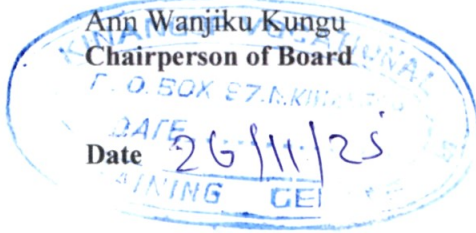 Ann Wanjiku Kungu
Chairperson of Board
VOCATIONAL
P. O. BOX 97
DATE
Date 26/11/25
TRAINING CE